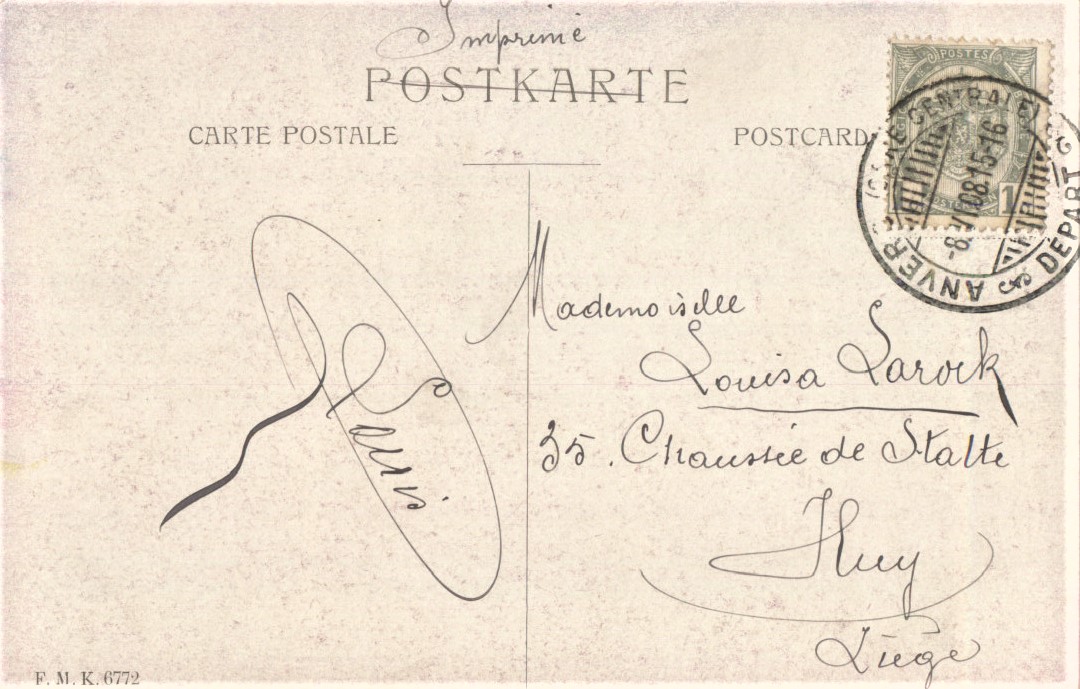 Imprimé
POSTKARTE
CARTE POSTALE
POSTCARD
POSTES
1
ANVERS (GARE CENTRALE)
DÉPART
-8 VI 08.15-16
Mademoiselle
Louisa Larock
35. Chaussée de Statte
Huy
Liége
Louis
F. M. K. 6772